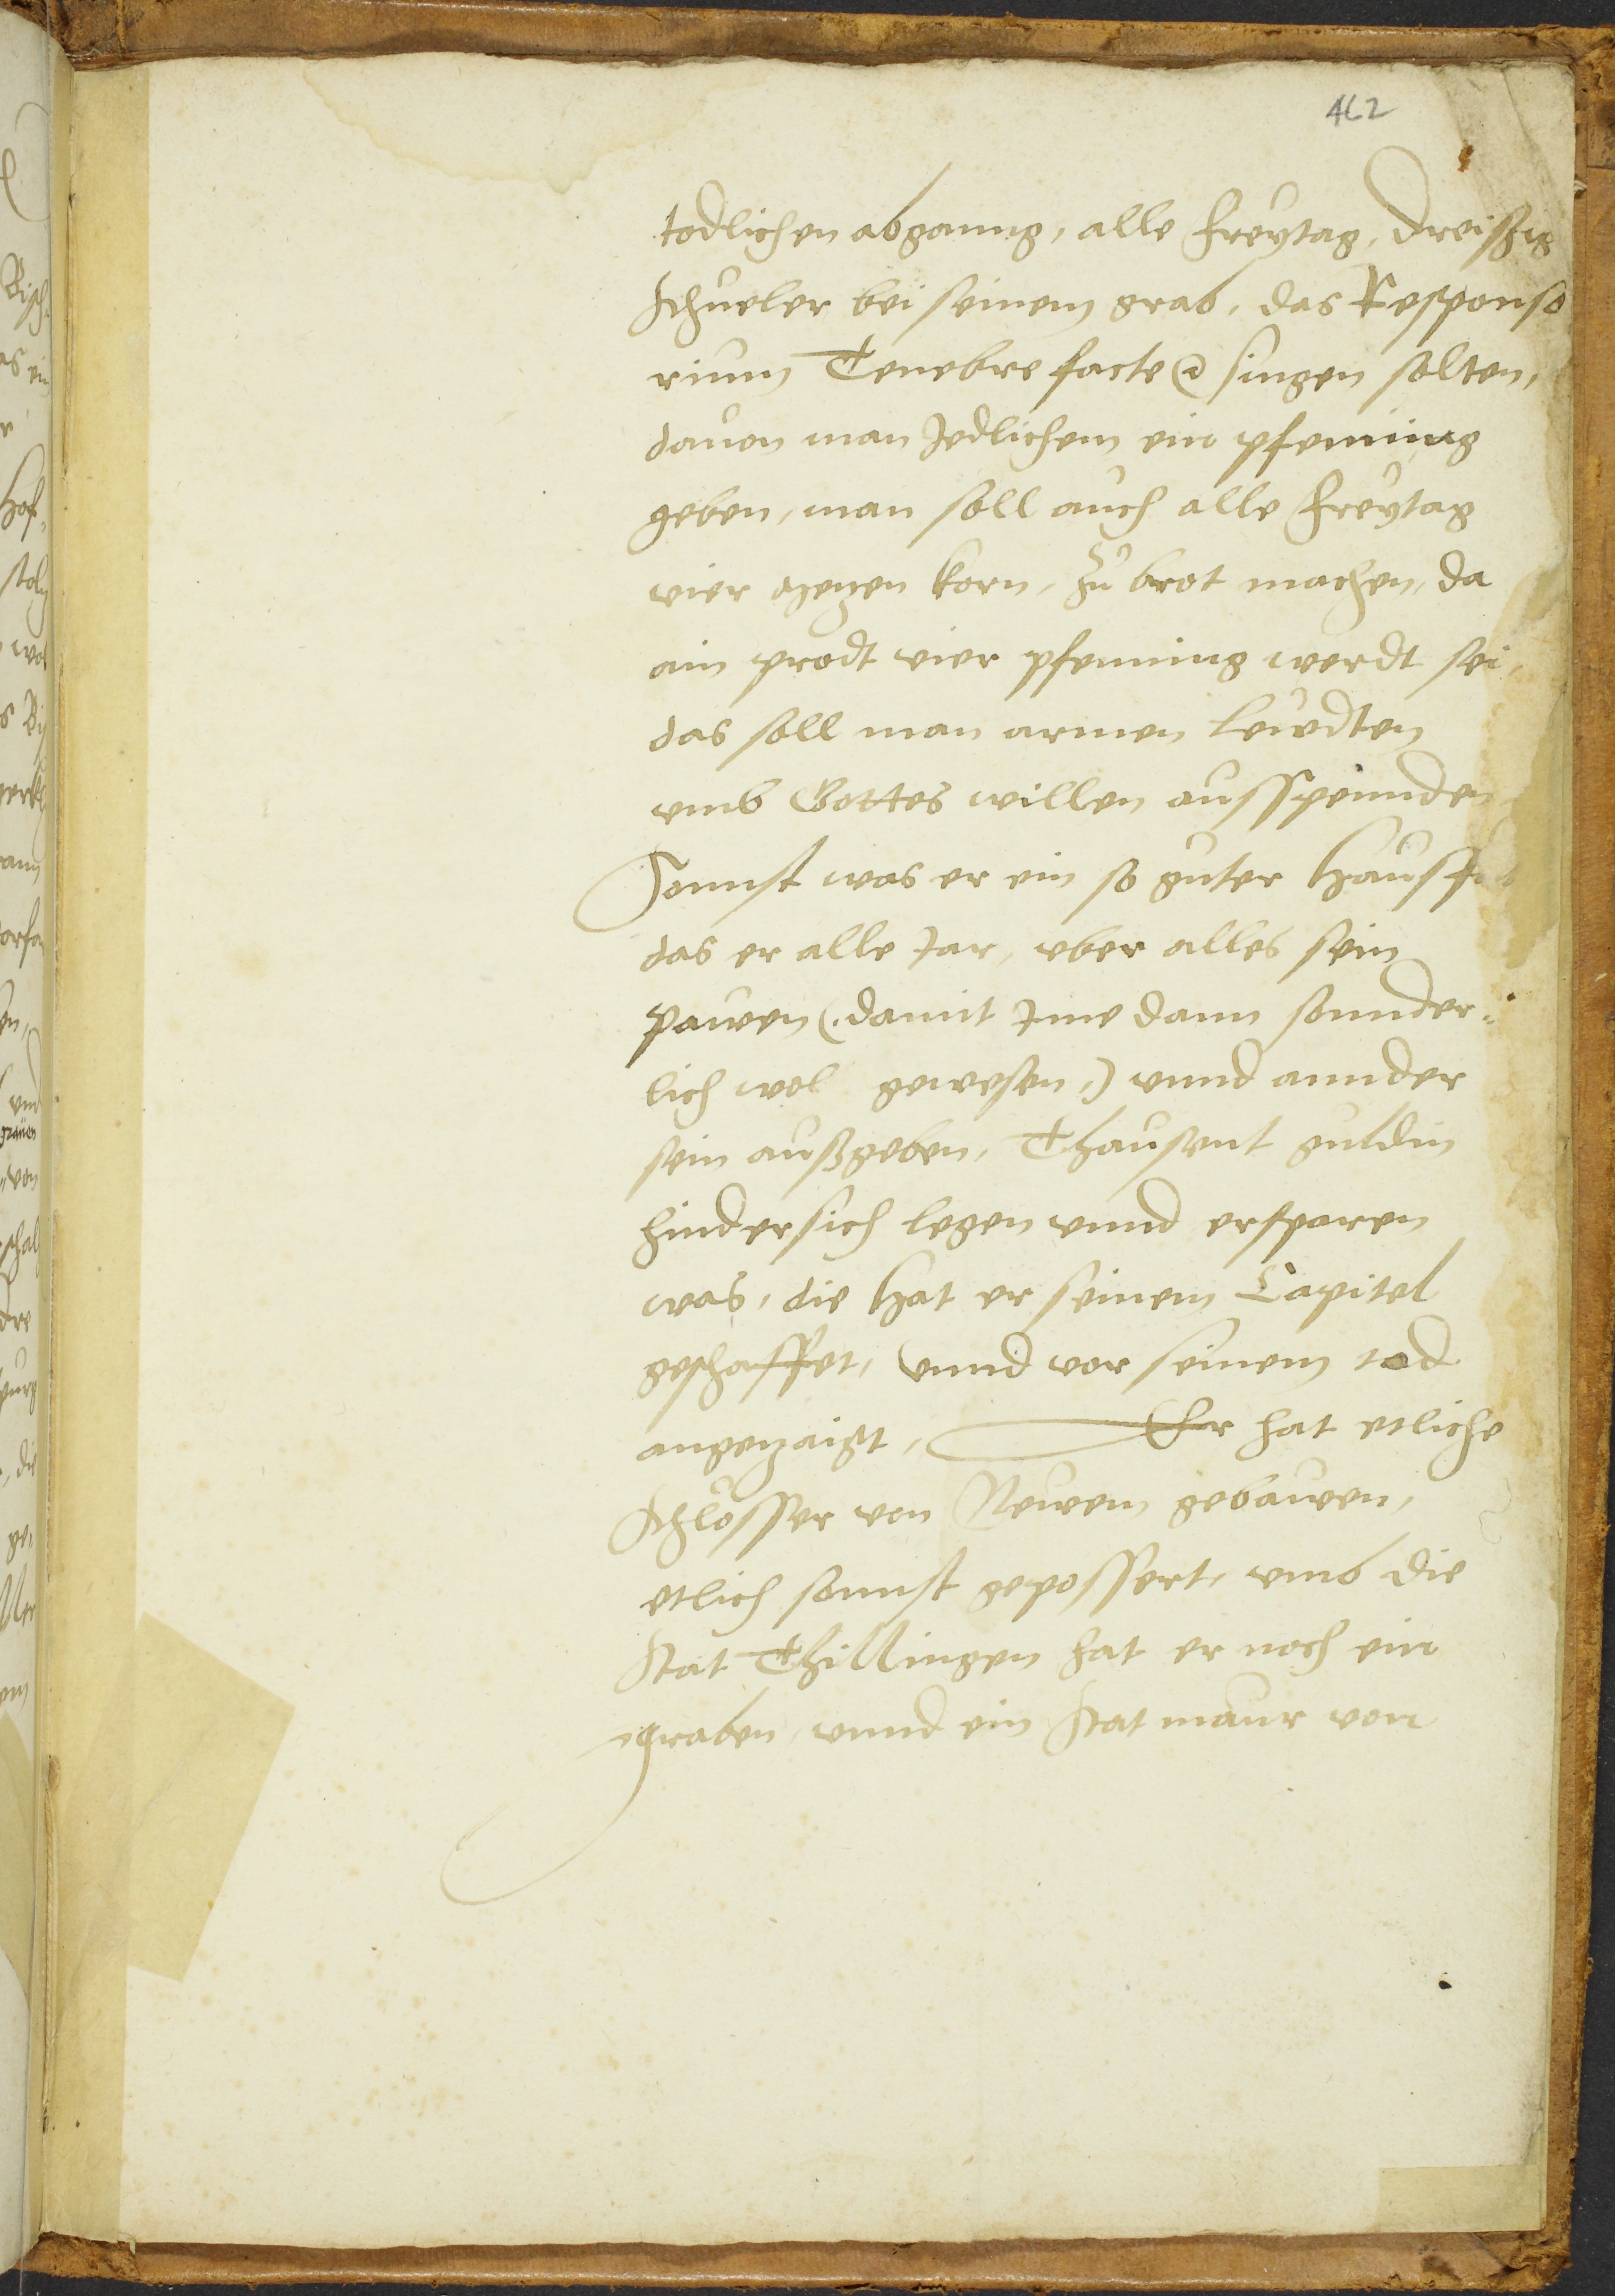 462
todlichen abganng, alle Freytag, dreißig
schueler bei seinem grab, das Responso
rium Tenebre facte @ singen solten,
dauon man Jedlichem ein pfenning
geben, man soll auch alle Freytag
vier metzen korn, zů brot machen, da
ain prodt vier pfenning werdt sei,
das soll man armen leudten
vmb Gottes willen ausspennden
Sonnst was er ein so guter
das er alle Jar, vber alles sein
pawen (damit Jme dann sonnder:
lich wol gewesen,) vnnd annder
sein außgeben, Thausent guldin
hindersich legen vnnd ersparen
was, die hat er seinem Capitel
geschaffet, vnnd vor seinem tod
angezaigt, Er hat etliche
schlosser von Newem gebawen,
etlich sonnst gepossert, vmb die
stat Thillingen hat er noch ein
graben, vnnd ein stat maur von